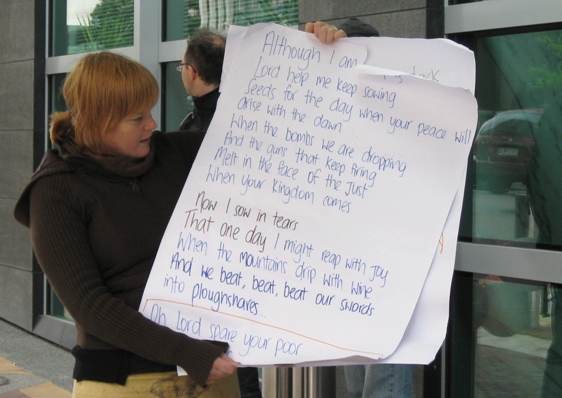 Although I am
Lord help me keep sowing
Seeds for the day when your peace will
arise with the dawn
When the bombs we are dropping
And the guns that keep firing
Melt in the face of the Just
When your kingdom comes
Now I sow in tears
That one day I might reap with joy
When the mountains drip with wine
And we beat, beat, beat our swords
into ploughshares
Oh Lord spare your poor